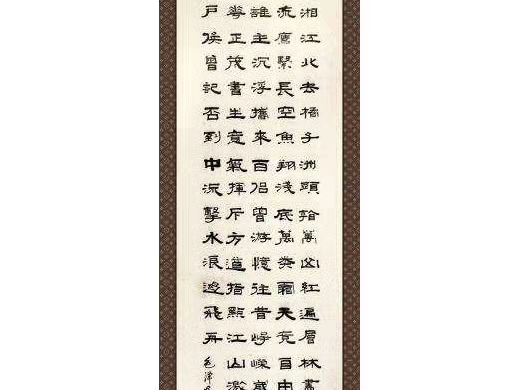 湘江北去橘子洲頭看萬山紅遍層林盡
流鷹擊長空魚翔淺底萬类霜天竞自由
誰主沉浮攜來百侶曾游憶往昔崢嶸歲
華正茂書生意氣揮斥方遒指點江山激
戶侯曾記否到中流擊水浪遏飛舟毛澤